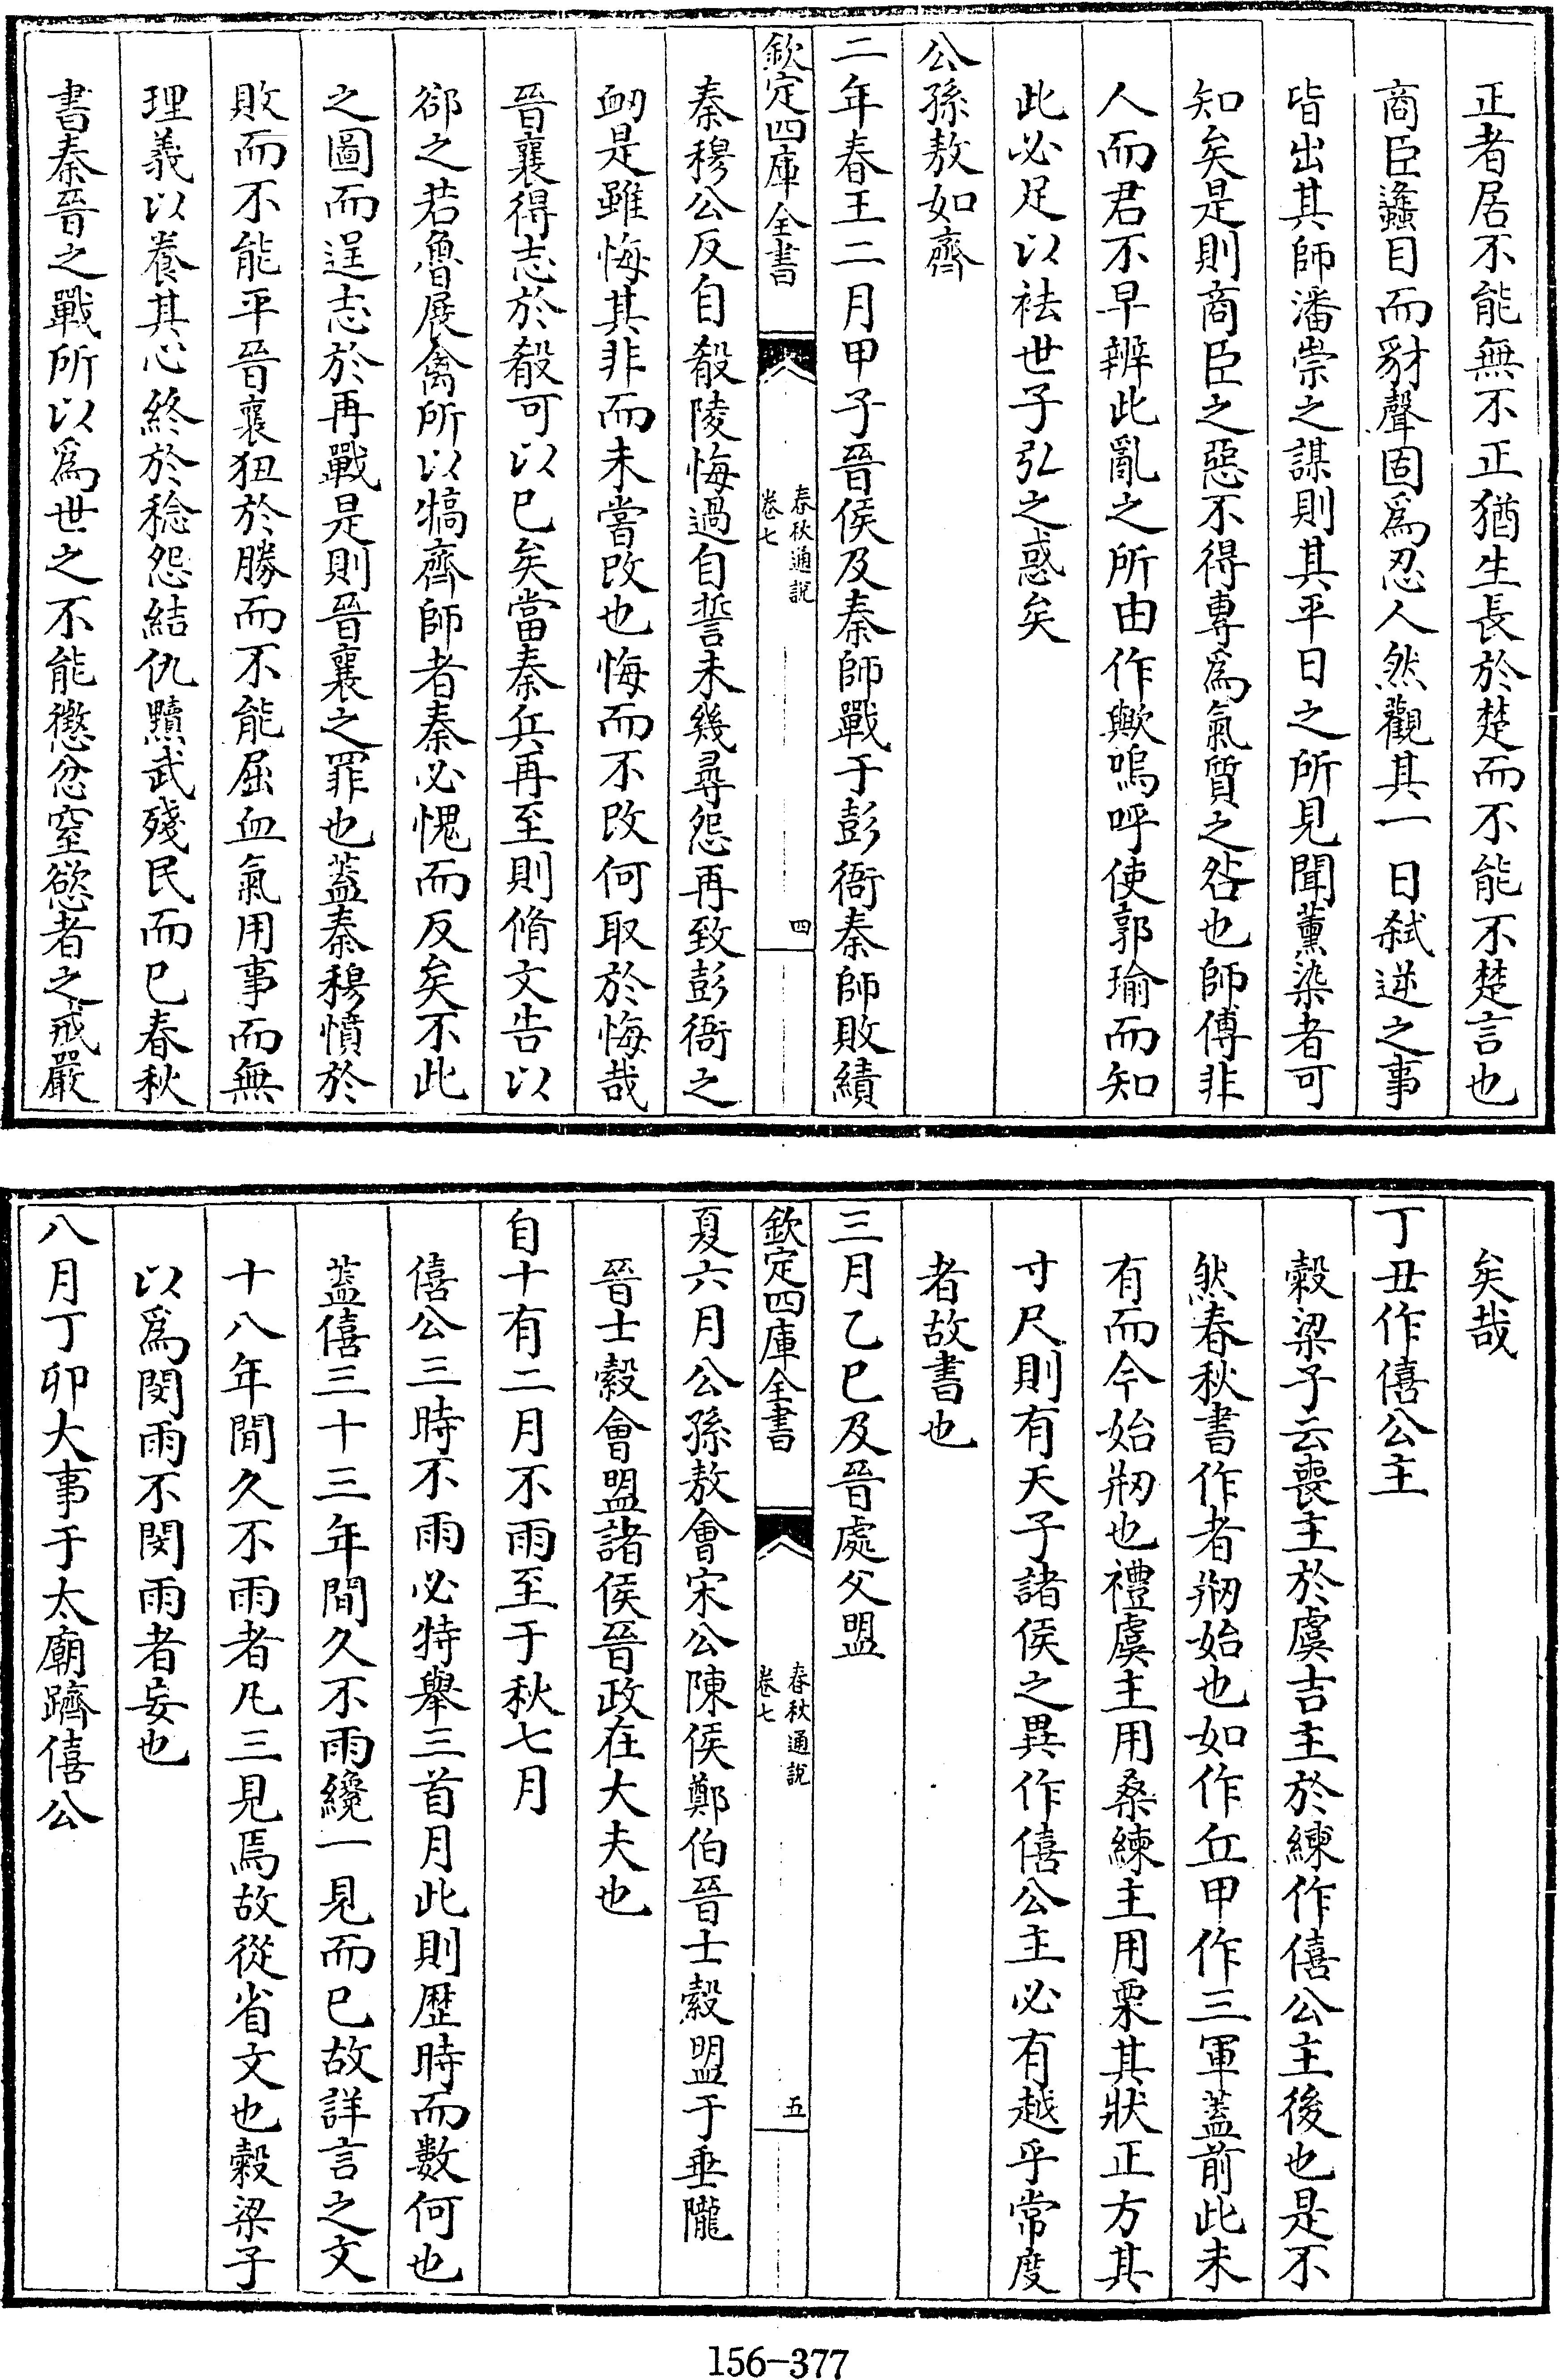 正者居不能無不正猶生長於楚而不能不楚言也
商臣蠭目而豺聲固為忍人然觀其一日弑逆之事
皆出其師潘崇之謀則其平日之所見聞薰染者可
知矣是則商臣之惡不得專為氣質之咎也師傅非
人而君不早辨此亂之所由作歟嗚呼使郭瑜而知
此必足以祛世子弘之惑矣
公孫敖如齊
二年春王二月甲子晉侯及秦師戰于彭衙秦師敗績
欽定四庫全書
春秋通說
卷七
四
秦穆公反自殽陵悔過自誓未幾尋怨再致彭衙之
衂是雖悔其非而未嘗改也悔而不改何取於悔哉
晉襄得志於殽可以已矣當秦兵再至則脩文告以
郤之若魯展禽所以犒齊師者秦必愧而反矣不此
之圖而逞志於再戰是則晉襄之罪也蓋秦穆憤於
敗而不能平晉襄狃於勝而不能屈血氣用事而無
理義以養其心終於稔怨結仇黷武殘民而已春秋
書秦晉之戰所以為世之不能懲忿窒慾者之戒嚴
矣哉
丁丑作僖公主
穀梁子云喪主於虞吉主於練作僖公主後也是不
然春秋書作者刱始也如作丘甲作三軍蓋前此未
有而今始刱也禮虞主用桑練主用栗其狀正方其
寸尺則有天子諸侯之異作僖公主必有越乎常度
者故書也
三月乙巳及晉處父盟
欽定四庫全書
春秋通說
卷七
五
夏六月公孫敖會宋公陳侯鄭伯晉士縠盟于垂隴
晉士縠會盟諸侯晉政在大夫也
自十有二月不雨至于秋七月
僖公三時不雨必特舉三首月此則歷時而數何也
蓋僖三十三年間久不雨纔一見而已故詳言之文
十八年間久不雨者凡三見焉故從省文也穀梁子
以為閔雨不閔雨者妄也
八月丁卯大事于太廟躋僖公
156-377